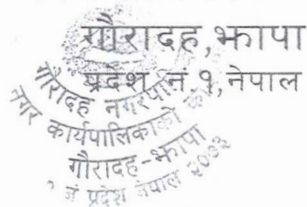 गौरादह, झापा
प्रदेश नं १, नेपाल
गौरादह नगरपालिका
नगर कार्यपालिकाको
गौरादह-झापा
१ नं प्रदेश नेपाल २०७३